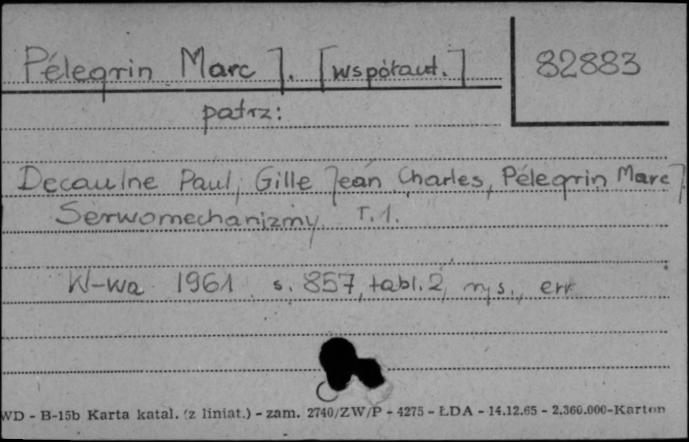 Pélegrin Marc J. [współaut.]
82883
patrz:
Decaulne Paul, Gille Jean Charles, Pélegrin Marc J.
Serwomechanizmy T.1.
W-wa 1961 s. 857, tabl. 2, rys., err
WD - B-15b Karta katal. (z liniat.) - zam. 2740/ZW/P - 4275 - ŁDA - 14.12.65 - 2.360.000-Karton